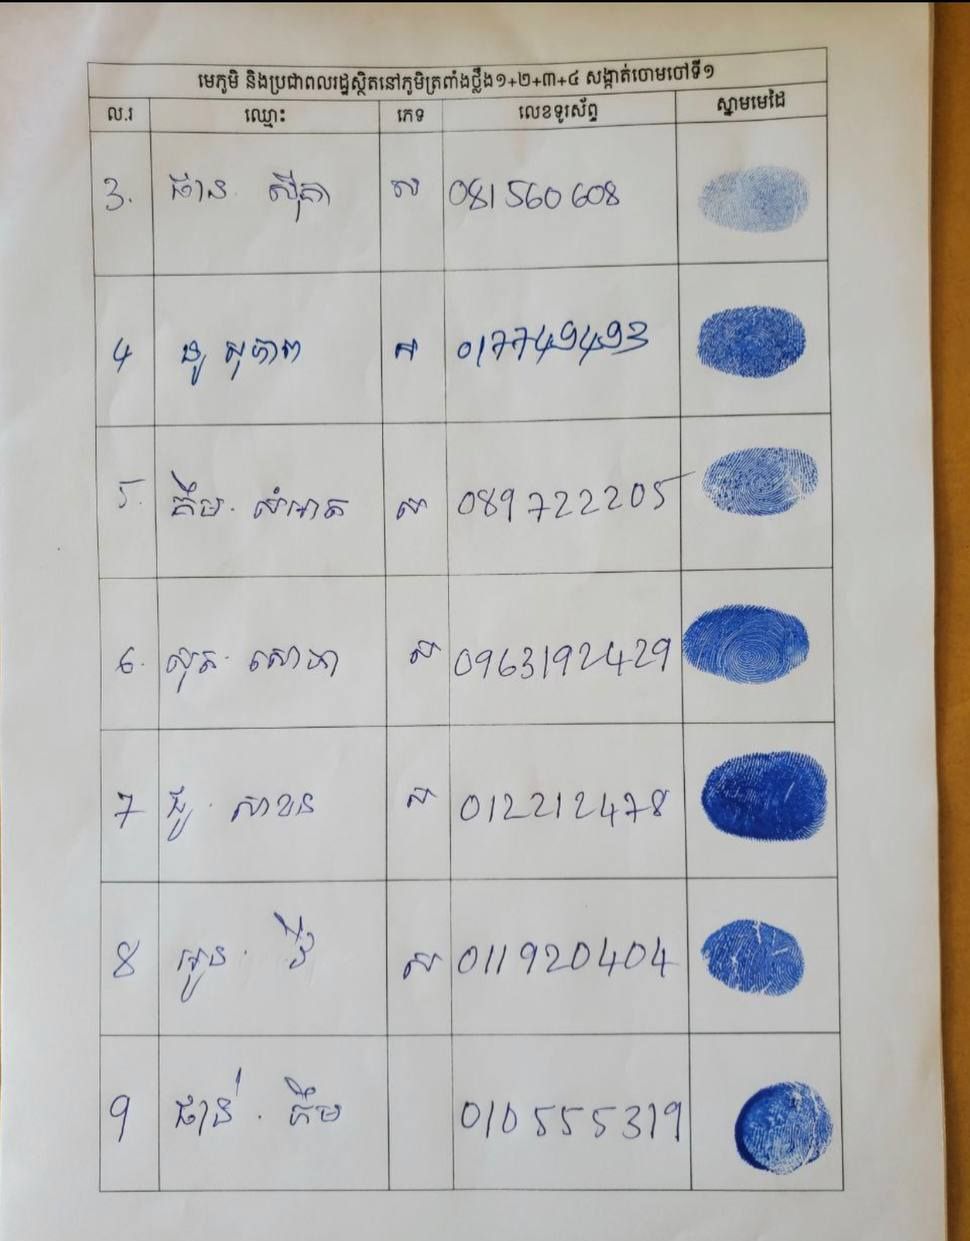 មេភូមិ និងប្រជាពលរដ្ឋស្ថិតនៅភូមិត្រពាំងថ្លឹង១+២+៣+៤ សង្កាត់ចោមចៅទី១
ល.រ ឈ្មោះ ភេទ លេខទូរស័ព្ទ ស្នាមមេដៃ
3. ផាន ស៊ីតា ស 081 560 608
4 នូ សុភាព ស 0177494493
5. គឹម សំអាត ស 089722205
6. សុត សោភា ស 0963192429
7 ជូ សាខន ស 012212478
8 អូន ស 011920404
9 ផាន់ គឹម 010555319